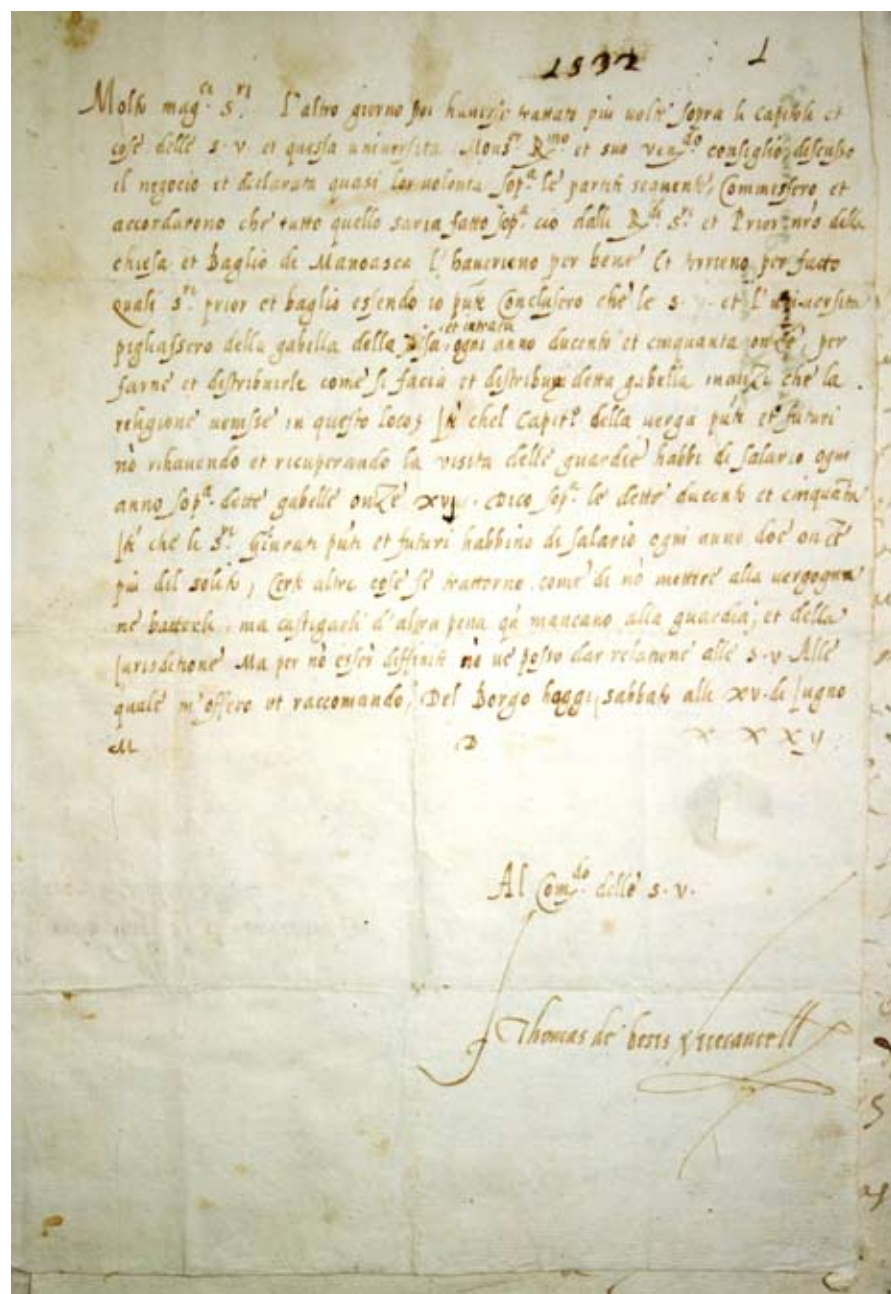 1532 1
Molto mag.ci s.ri L'altro giorno poi haversé trattato piu volté sopra li capitoli et
cosé dellé s. v. et questa università Mons.r R.mo et suo ven.do consiglio, discusso
il negocio et declarata quasi lor volonta sop.a lé partiti sequenté, Commessero et
accordarono ché tutto quello saria fatto sop.a cio dalli R.di s.ri et Prior nro della
chiesa et Baglio di Manoasca l'haverieno per bené Et terrieno per facto
quali s.ri prior et baglio essendo io pnté Conclusero ché le s. v. et l'università
pigliassero della gabella della et intrata ogni anno ducento et cinquanta onzé, per
farné et distribuirlé comé si facia et distribuea detta gabella inanzi ché la
religioné venissé in questo loco; Ité chel Capit.o della verga pnti et futuri
nò rihavendo et recuperando la visita dellé guardié habbi di salario ogni
anno sop.a detté gabellé onzé xvj. Dico sop.a le detté ducento et cinquanta
Ité che li s.ri Giurati pnti et futuri habbino di salario ogni anno doé onzé
piu del solito, Certé altré cosé sé trattorno comé di nò metteré alla vergogna
né batterli, ma castigarli d'altra pena qn mancano alla guardia, et della
Jurisditioné Ma per nò esser diffinité nò vé posso dar relationé allé s. v. Allé
qualé m'offero et raccomando, Del Borgo hoggi sabbato alli xv. di Jugno
M D X X X ij
Al Com.do dellé s. v.
Thomas de bosis Vicecancell